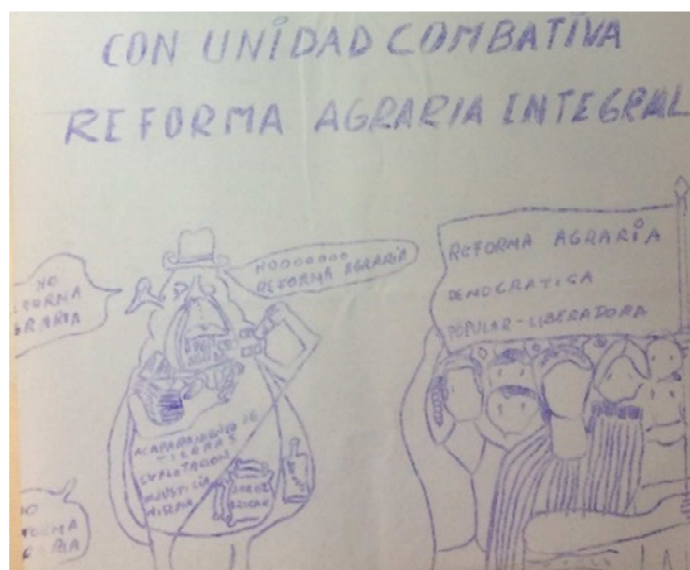 CON UNIDAD COMBATIVA
REFORMA AGRARIA INTEGRAL
NO
AGRARIA
NOOOOOOO
REFORMA AGRARIA
REFORMA AGRARIA
DEMOCRATICA
POPULAR-LIBERADORA
ACAPARAMIENTO DE
TIERRAS
EXPLOTACION
INJUSTICIA
MISERIA